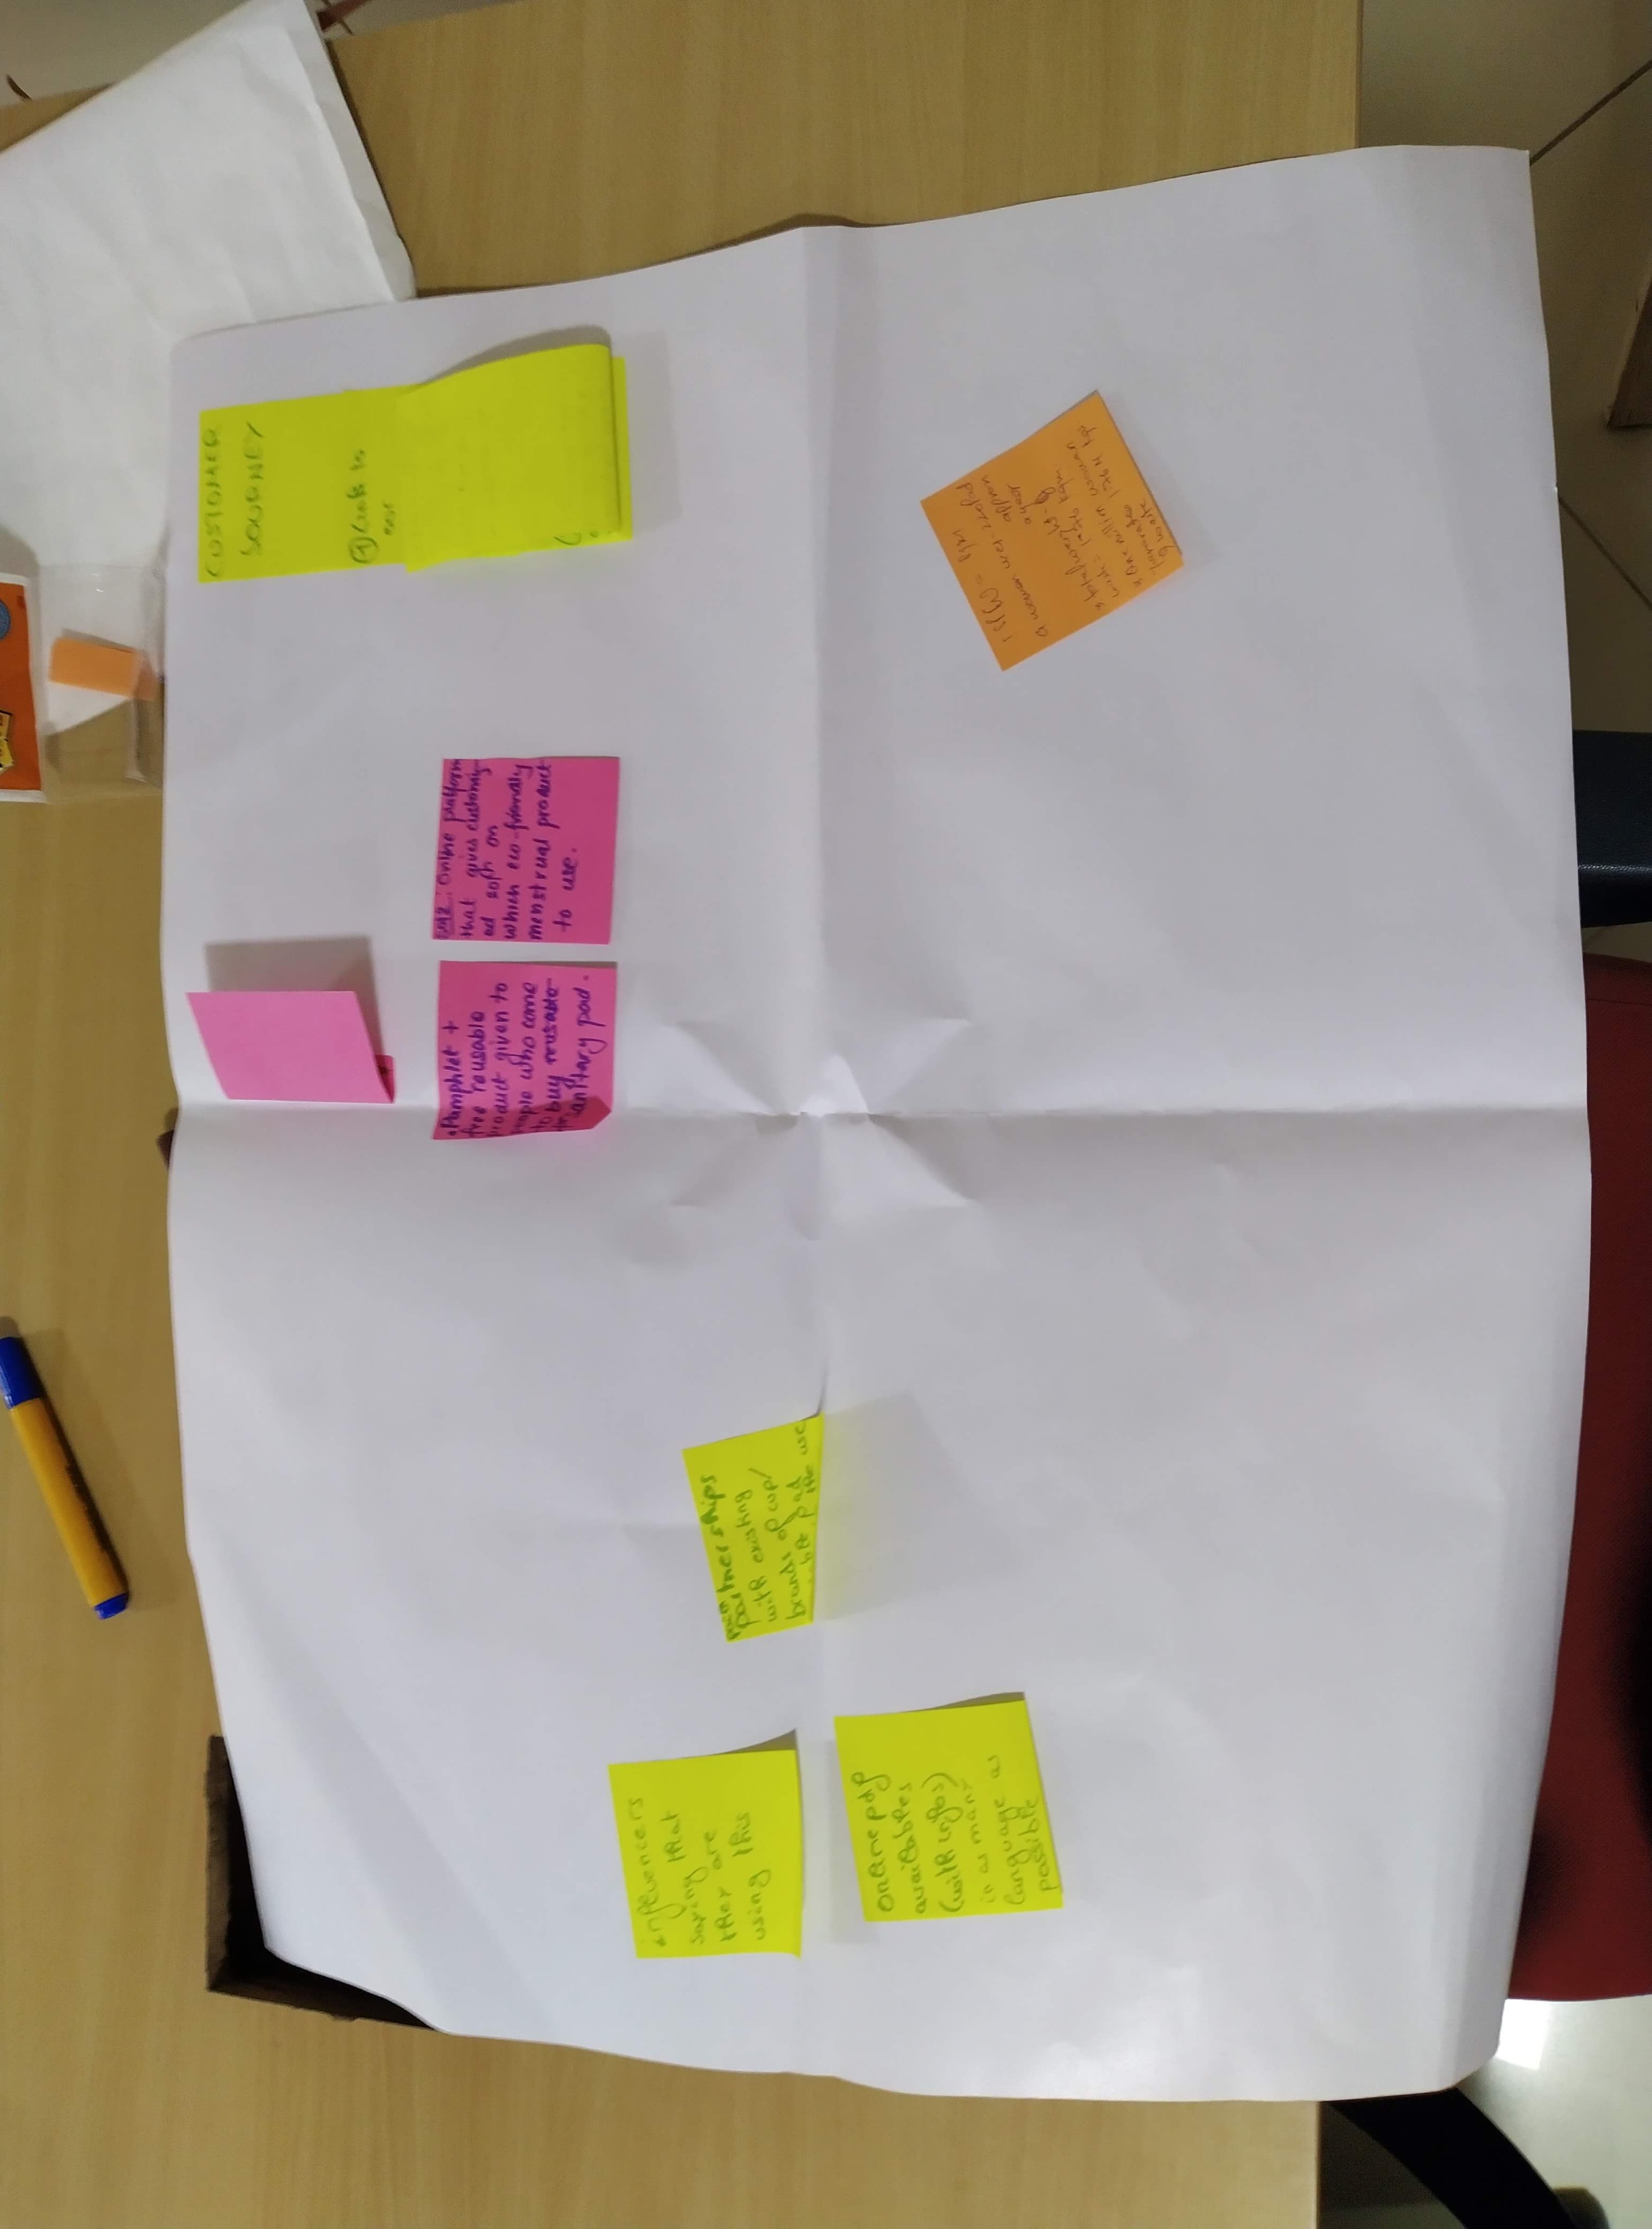 CUSTOMER
JOURNEY
① Look to
our
• Pamphlet +
free reusable
product given to
people who come
to buy reusable
sanitary pad.
Online platform
that gives customiz-
ed sofn on
which eco-friendly
menstrual product
to use.
influencers
saying that
they are
using this
partnerships
with existing
brands of cup/
pad
the use
online pdf
availables
(with infos)
in as many
language as
possible
a woman uses 220 Pad
approx
a year
* total weight of
1.76 kgm
* One million women
generates 1.76 M kgs
of waste